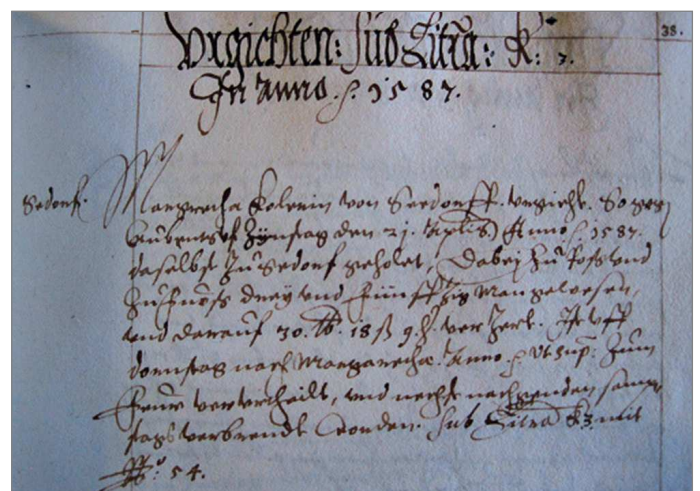 Vrgichten: sub Litra: K: 7.
38.
In Anno .s. 1587.
Sedorf.
Margretha Kolerin von Seedorff. vrgicht. So
Zinstag den 21. Aprilis Anno .s. 1587.
daselbst zu Sedorf geholet, dabej zu Ross vnd
zu fuoss drey vnd fünffzig Man gewesen,
vnd darauf 30. lb. 18 ß 9. h. verzert. Ist vff
dornstag nach Margaretha. Anno .s. vt sup: zum
feur vervrtheilt, vnd nechst nachgenden samp
stags verbrendt worden. sub Litra K3. mit
No. 54.